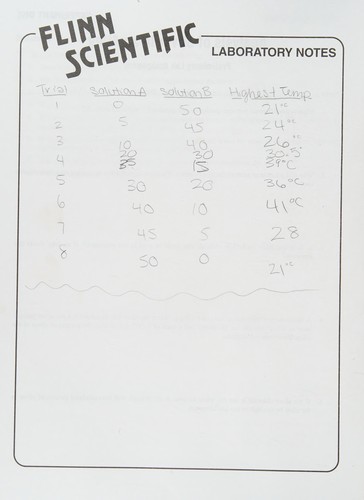 FLINN
SCIENTIFIC
LABORATORY NOTES
Trial Solution A Solution B Highest Temp
1 0 50 21°C
2 5 45 24°C
3 10 40 26°C
20 30 30.5°
4 35 15 39°C
5 30 20 36°C
6 40 10 41°C
7 45 5 28
8 50 0 21°C